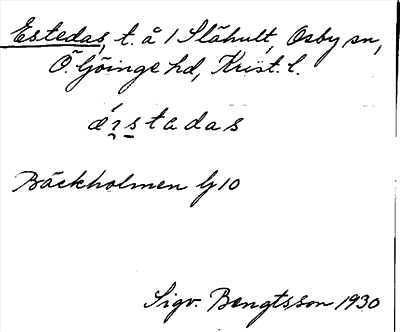 Estedas, t. å 1 Slähult, Osby sn,
Ö. Göinge hd, Krist. l.
ǽɿstadas
Bäckholmen G 10
Sigv. Bengtsson 1930